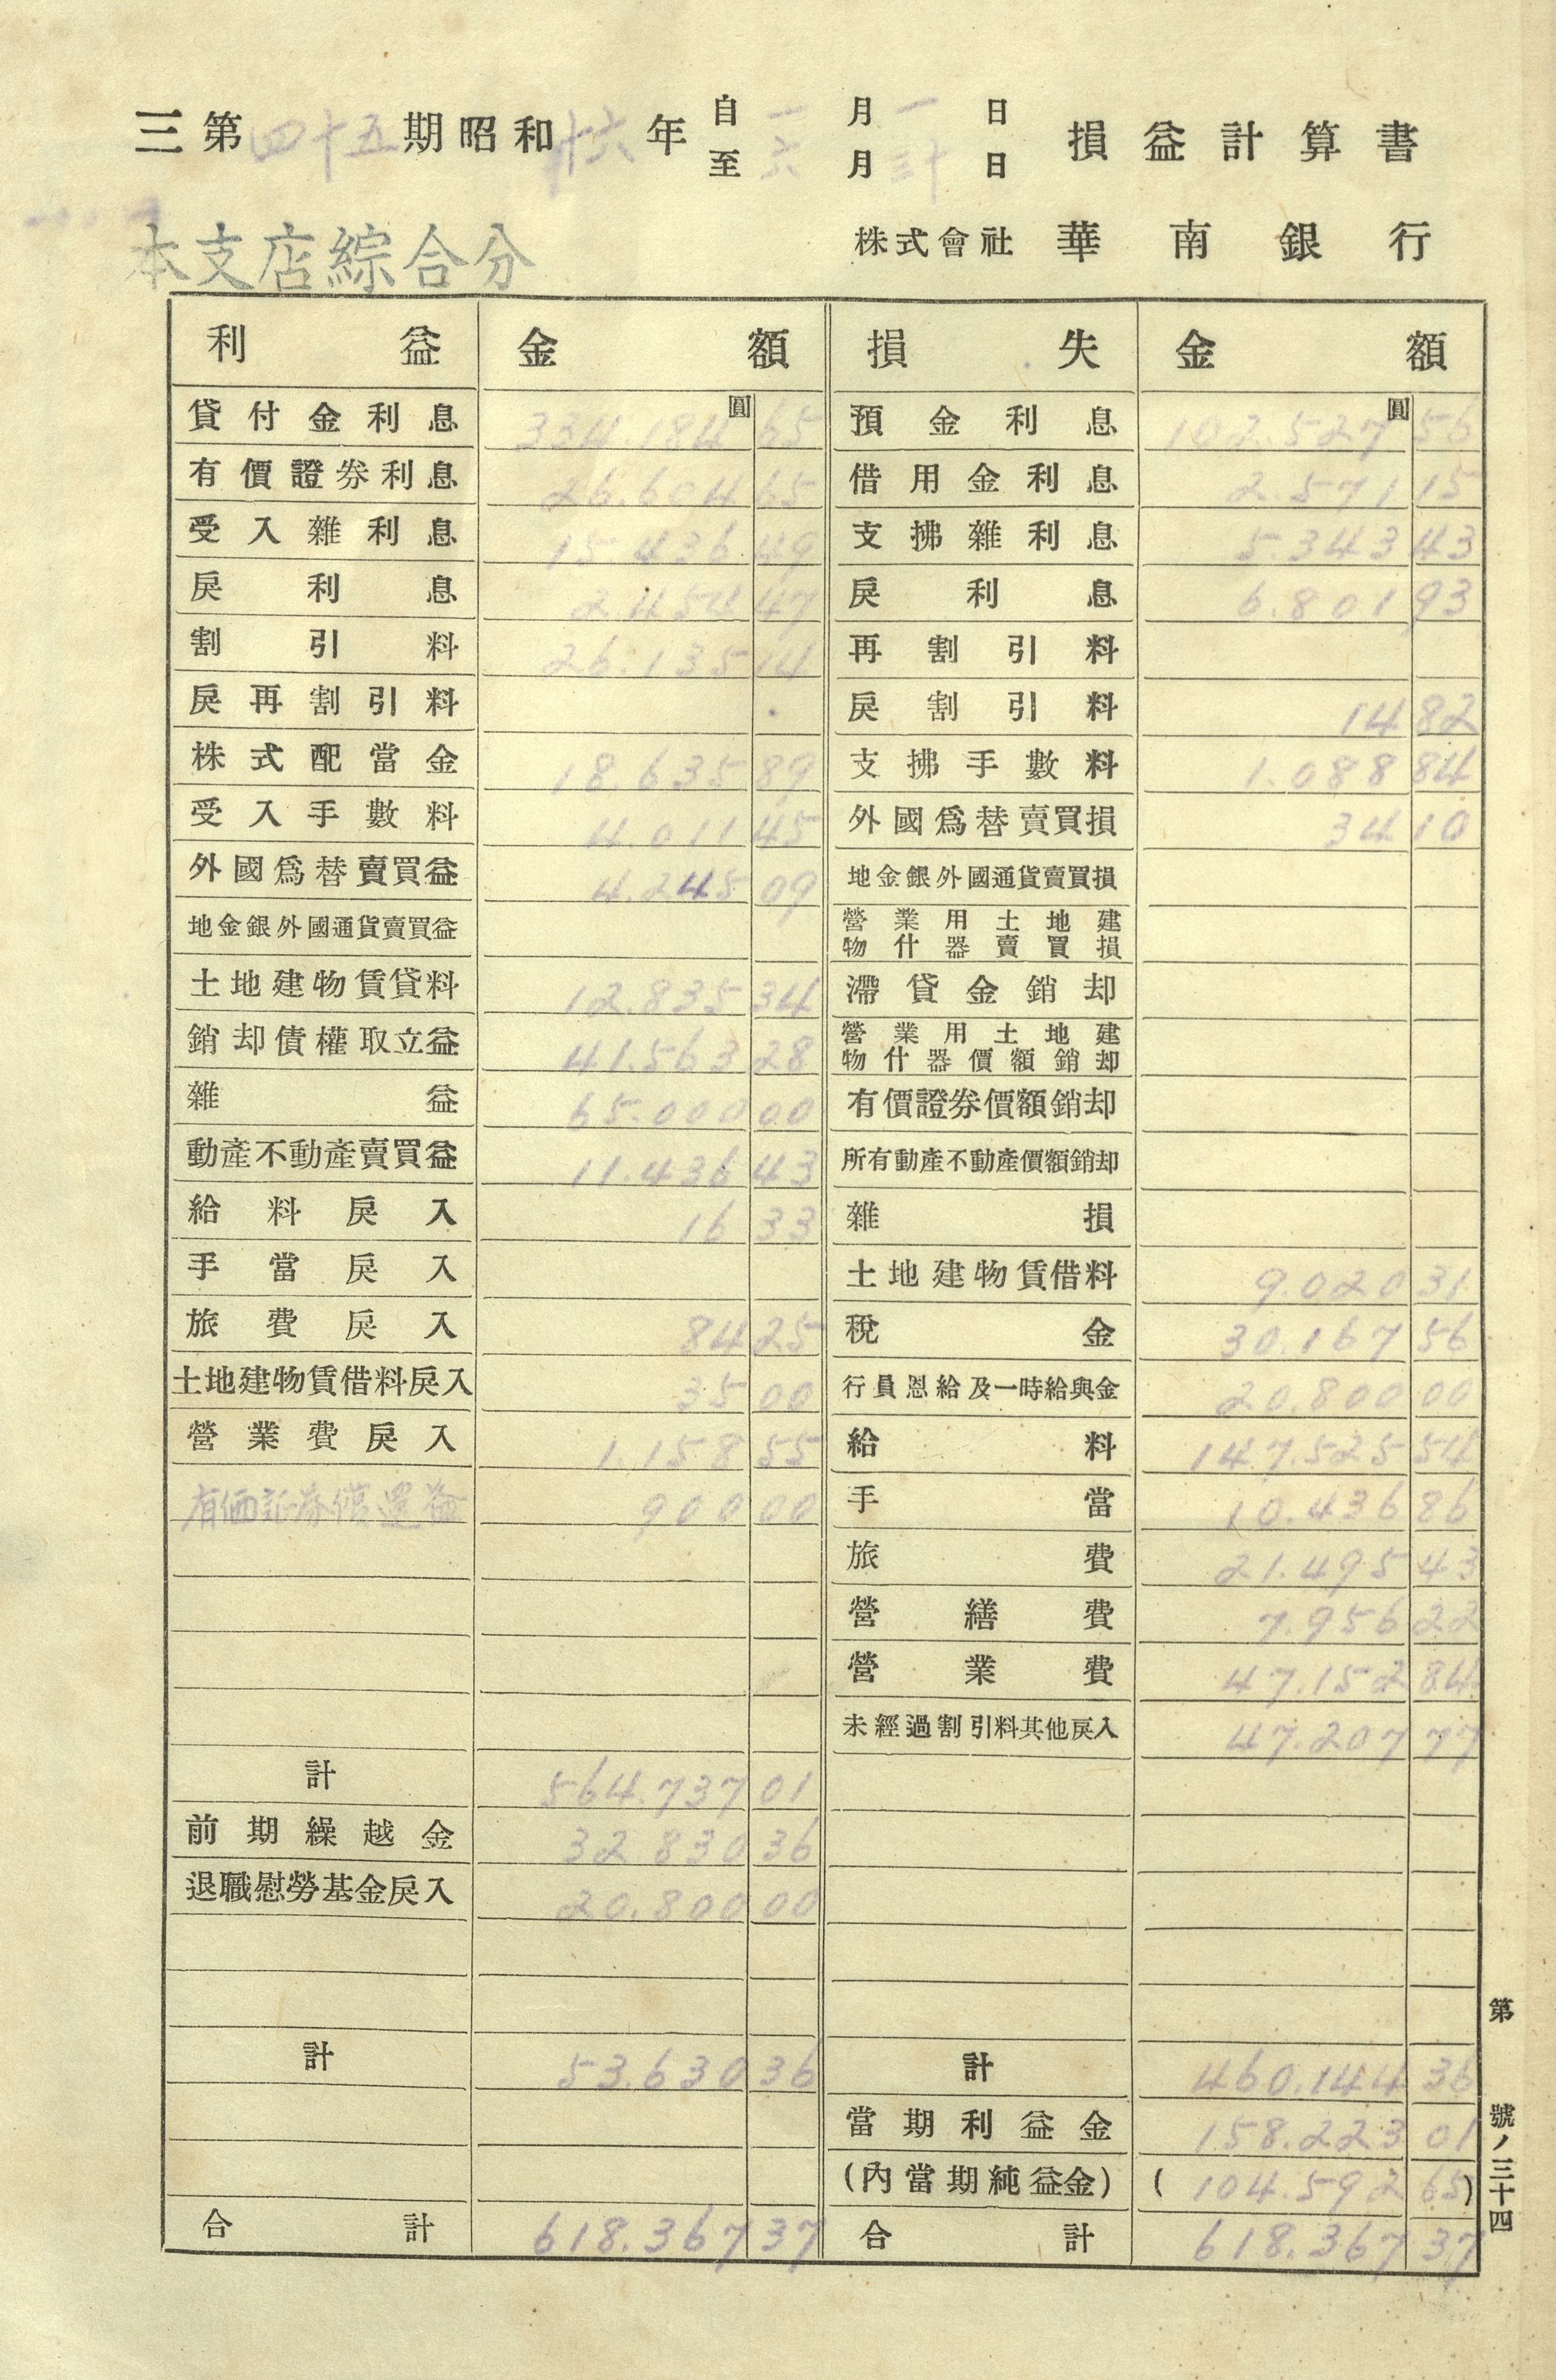 三第四十五期昭和十六年自一月一日至六月三十日損益計算書
本支店綜合分
株式會社華南銀行
利益 金額 損失 金額
貸付金利息 圓 334.184 65 預金利息 圓 102.527 56
有價證券利息 26.604 65 借用金利息 2.571 15
受入雜利息 15.436 49 支拂雜利息 5.343 43
戾利息 2.454 47 戾利息 6.801 93
割引料 26.135 14 再割引料
戾再割引料 戾割引料 14 82
株式配當金 18.635 89 支拂手數料 1.088 84
受入手數料 4.011 45 外國爲替賣買損 34 10
外國爲替賣買益 4.245 09 地金銀外國通貨賣買損
地金銀外國通貨賣買益 營業用土地建物什器賣買損
土地建物賃貸料 12.835 34 滯貸金銷却
銷却債權取立益 41.563 28 營業用土地建物什器價額銷却
雜益 65.000 00 有價證券價額銷却
動產不動產賣買益 11.436 43 所有動產不動產價額銷却
給料戾入 16 33 雜損
手當戾入 土地建物賃借料 9.020 31
旅費戾入 84 25 稅金 30.167 56
土地建物賃借料戾入 35 00 行員恩給及一時給與金 20.800 00
營業費戾入 1.158 55 給料 147.525 54
有価証券償還益 900 00 手當 10.436 86
旅費 21.495 43
營繕費 7.956 22
營業費 47.152 84
未經過割引料其他戾入 47.207 77
計 564.737 01
前期繰越金 32.830 36
退職慰勞基金戾入 20.800 00
計 53.630 36 計 460.144 36
當期利益金 158.223 01
(內當期純益金) (104.592 65)
合計 618.367 37 合計 618.367 37
第 號ノ三十四